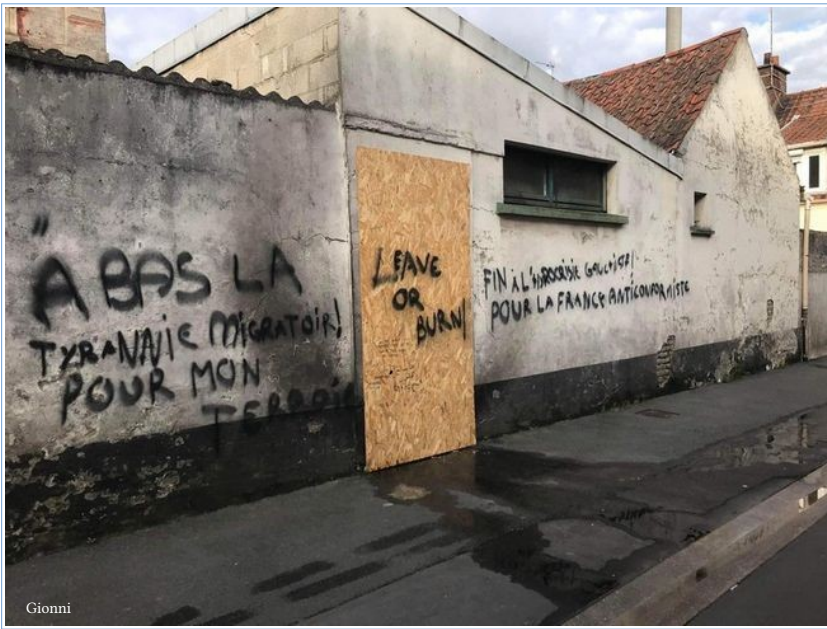 "A BAS LA
TYRANNIE MIGRATOIR!
POUR MON
TERROIR
LEAVE
OR
BURN!
FIN à L'HYPOCRISIE GAUCHISTE!
POUR LA FRANCE ANTICONFORMISTE
Gionni